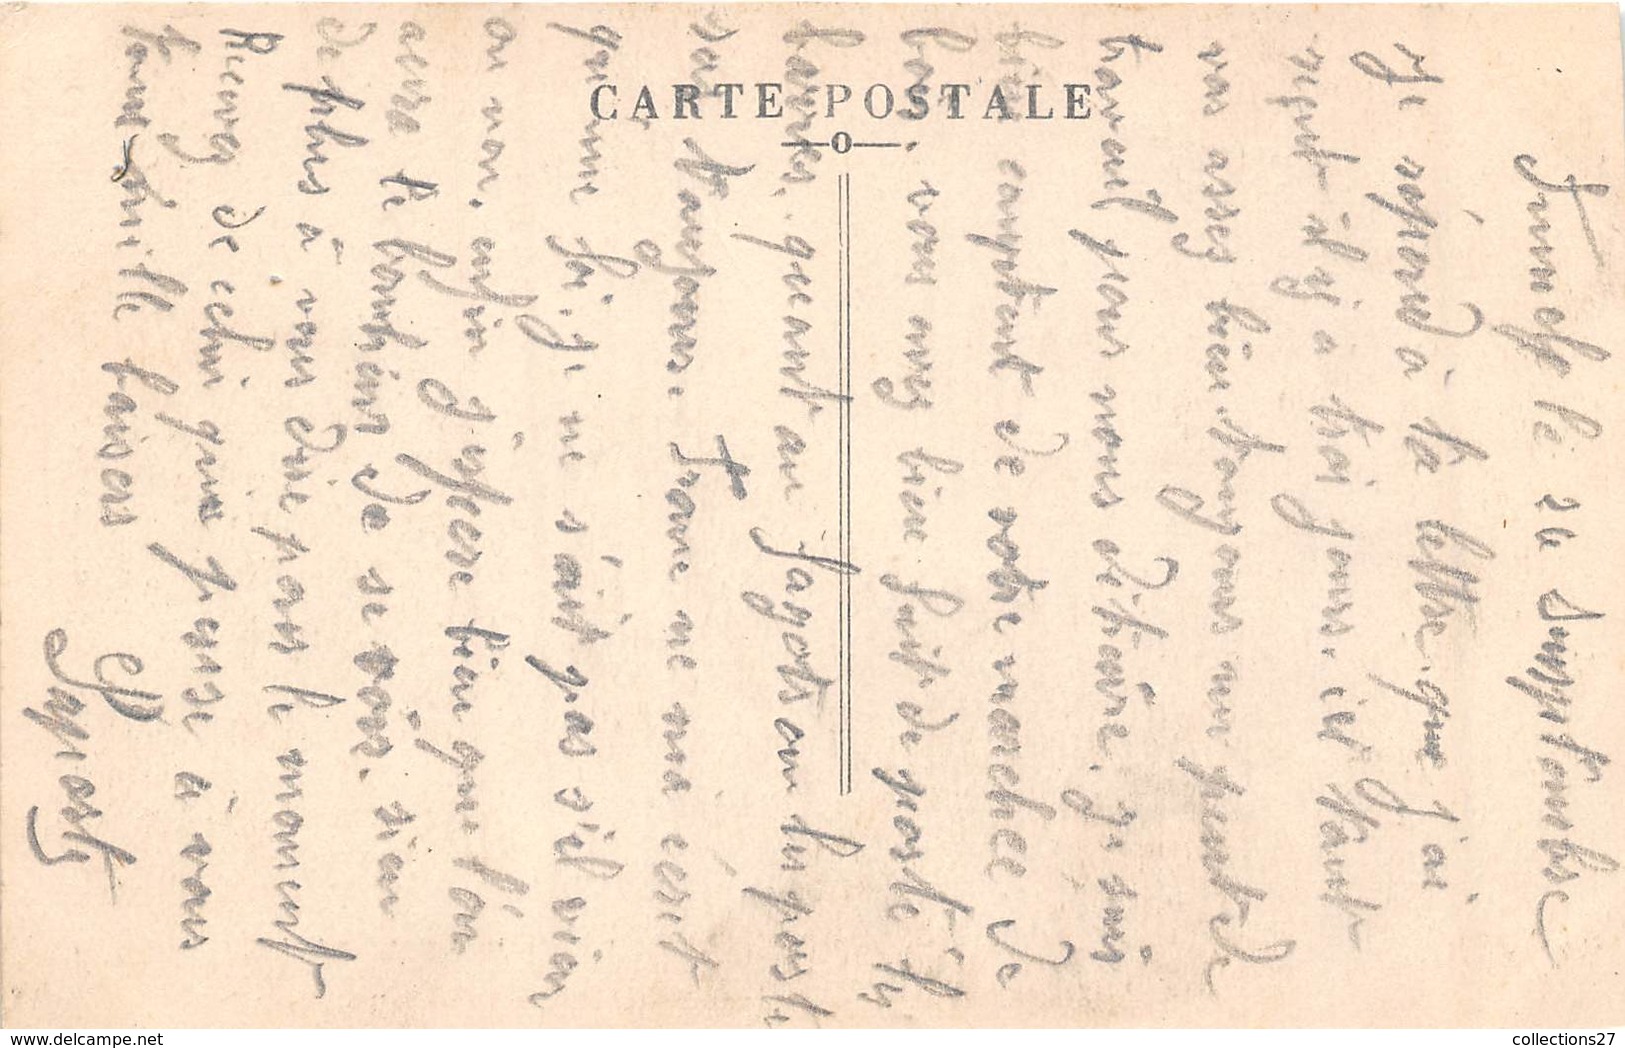 CARTE POSTALE
le 24 Septembre
Je répond à ta lettre que j'ai
reçut il y a troi jours. il faut
assez bien toujours un peut de
travail pour nous détruire. je suis
bien comptent de votre marchee de
bois, vous avez bien fait de
barres, quant au fagots on lui
toujours. Frane ne ma écrit
qu'une foi. je ne s'ait pas s'il vien
ou non. enfin j'espere bien que l'on
aura le bonheur de se voir. rien
de plus à vous dire pour le moment
Recevez de celui qui pense à vous
tous mille baisers
collections27